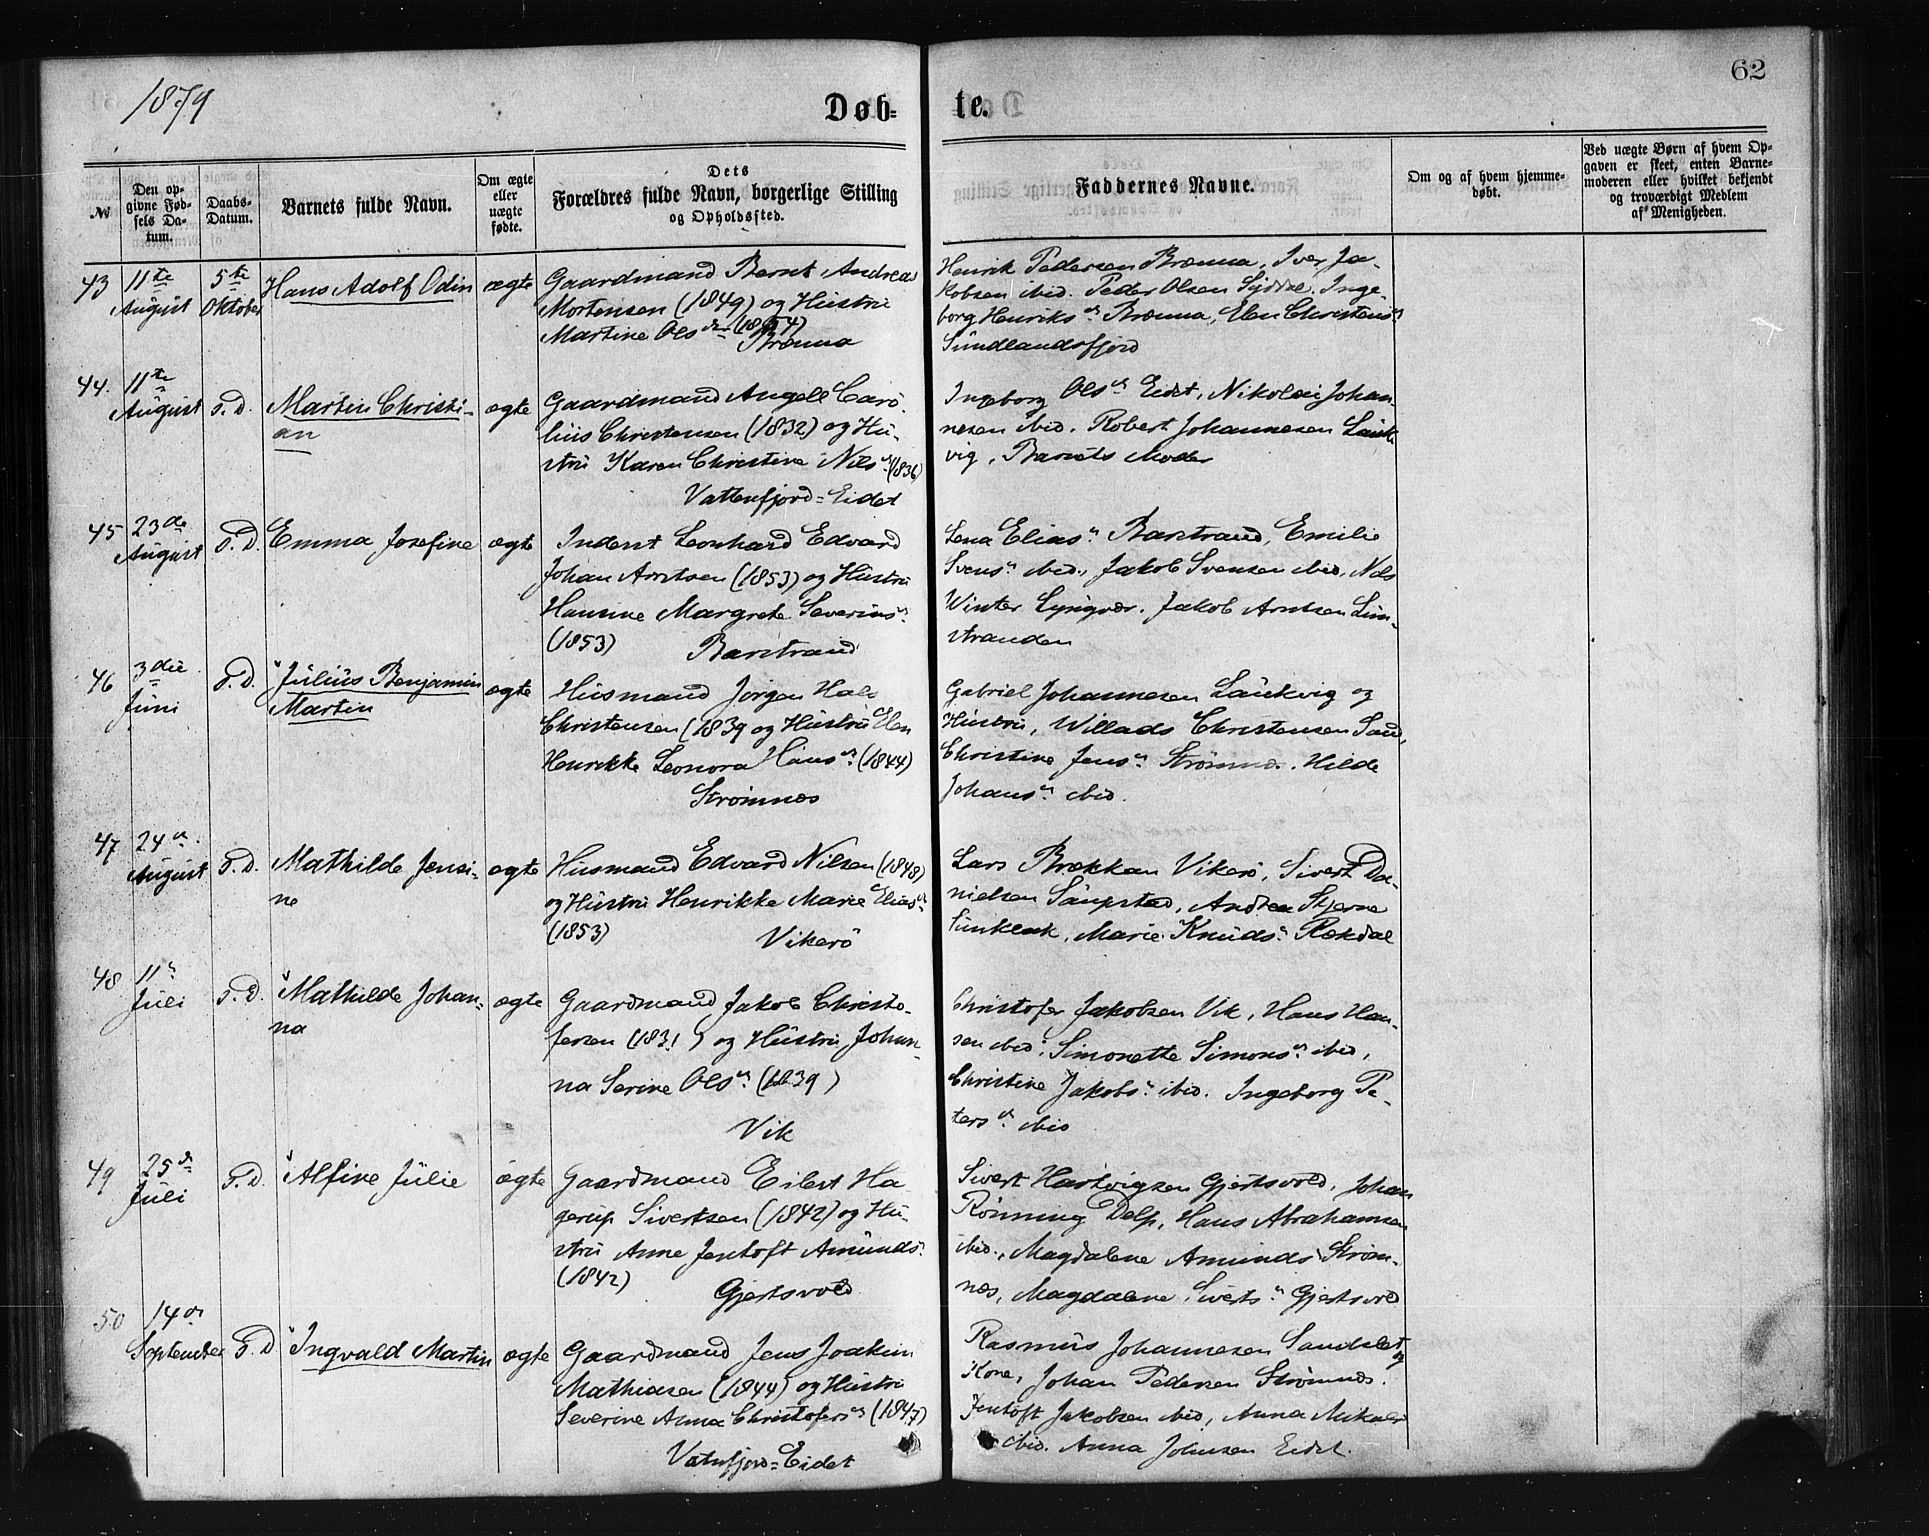 1879
62
Døb-
te.
№
Den op-
givne Fød-
sels Da-
tum.
Daabs-
Datum.
Barnets fulde Navn.
Om ægte
eller
uægte
fødte.
Dets
Forældres fulde Navn, borgerlige Stilling
og Opholdsfted.
Faddernes Navne.
Om og af hvem hjemme-
døbt.
Ved uægte Børn af hvem Op-
gaven er skeet, enten Barne-
moderen eller hvilket bekjendt
og troværdigt Medlem
af Menigheden.
43
11te
August
5te
Oktober
Hans Adolf Odin
ægte
Gaardmand Bernt Andreas
Mortensen (1849) og Hustru
Martine Olsdr (1854)
Brenna
Henrik Pedersen Brenna, Iver Ja-
kobsen ibid. Peder Olsen Sydal. Inge-
borg Henriks dr Brenna, Elen Christens dr
Sundlandsfjord
44.
11te
August
T.D.
Martin Christi-
an
ægte
Gaardmand Angell Caro-
lius Christensen (1832) og Hu-
stru Karen Christine Nils dr (1836)
Vatterfjord-Eidet
Ingeborg Ols dr Eidet, Nikolai Johan-
nesen ibid. Robert Johannesen Lauk
vig, Barnets Moder
45
23de
August
T.D.
Emma Josefine
ægte
Inderst Leonhard Edvard
Johan Arntsen (1853) og Hustru
Hansine Margrete Severins dr
(1853)
Barstrand
Lena Elias dr Barstrand, Emilie
Svens dr ibid., Jakob Svensen ibid, Nils
Winter Lyngvær. Jakob Arntsen Lim-
stranden
46
3die
Juni
T.D.
Julius Benjamin
Martin
ægte
Husmand Jørgen Hals
Christensen (1839 og Hustru Elen
Henrikke Leonora Hans dr (1844)
Strømnes
Gabriel Johannesen Laukvig og
Hustru, Willads Christensen Sand,
Christine Jens dr Strømnes. Hilde
Johans dr ibid.
47
24de
August
T.D.
Mathilde Jensi-
ne
ægte
Husmand Edvard Nilsen (1848)
og Hustru Henrikke Marie Elias dr
(1853)
Vikerö
Lars Brekkan Vikerö, Sivert Da-
nielsen Saupstad, Andrea Stjerne
Sunklak, Marie Knuds dr Rekdal
48
11te
Juli
T.D.
Mathilde Johan-
na
ægte
Gaardmand Jakob Christo-
fersen (1831) og Hustru Johan-
na Serine Ols dr (1839)
Vik
Christofer Jakobsen Vik, Hans Han-
sen ibid, Simonette Simons dr ibid,
Christine Jakobs dr ibid. Ingeborg Pe-
ters dr ibid
49
25de
Juli
T.D.
Alfine Julie
ægte
Gaardmand Eilert Ha-
gerup Sivertsen (1842) og Hu-
stru Anne Jentoft Amunds dr
(1842)
Gjertsvold
Sivert Hartvigsen Gjertsvold, Johan
Rönning Delp, Hans Abrahamsen
ibid., Magdalene Amunds dr Strøm-
nes, Magdalene Siverts dr Gjertsvold
50
14de
September
T.D
Ingvald Martin
ægte
Gaardmand Jens Joakim
Mathiasen (1844) og Hustru
Severine Anna Christofers dr (1847)
Vaterfjord-Eidet
Rasmus Johannesen Sandslet og
Kone, Johan Pedersen Strømnes.
Jentoft Jakobsen ibid, Anna Mikals
ibid. Anna Johnsen Eidet.